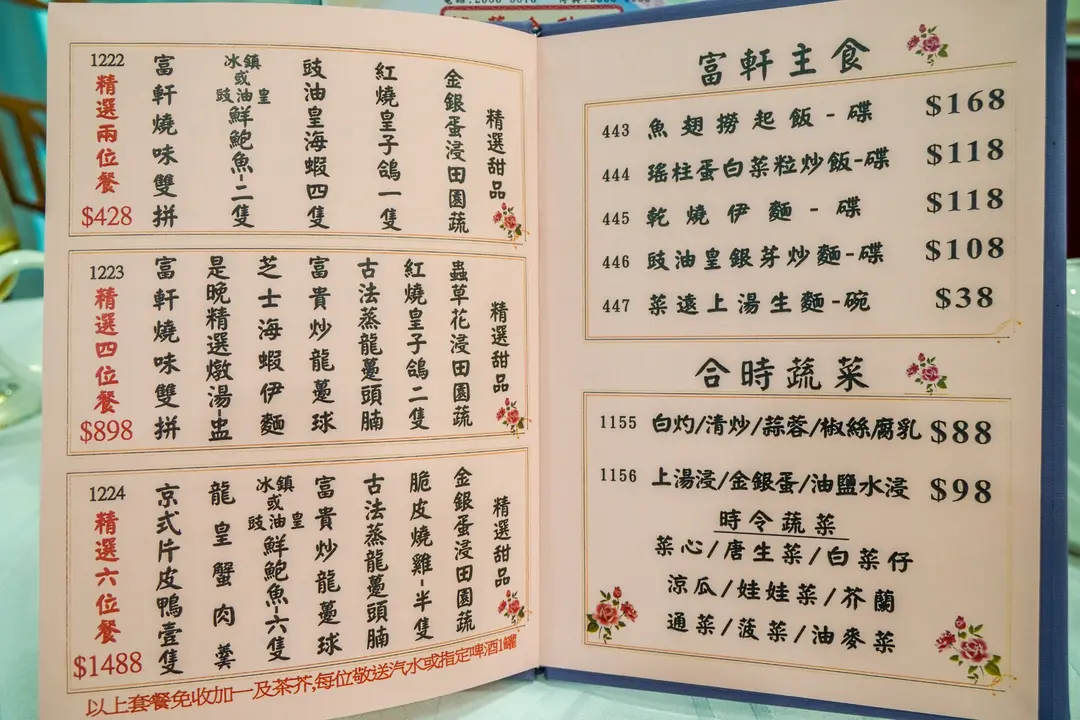 1222
精選兩位餐
$428
富軒燒味雙拼
冰鎮或豉油皇鮮鮑魚-二隻
豉油皇海蝦四隻
紅燒皇子鴿一隻
金銀蛋浸田園蔬
精選甜品
1223
精選四位餐
$898
富軒燒味雙拼
是晚精選燉湯-盅
芝士海蝦伊麵
富貴炒龍躉球
古法蒸龍躉頭腩
紅燒皇子鴿二隻
蟲草花浸田園蔬
精選甜品
1224
精選六位餐
$1488
京式片皮鴨壹隻
龍皇蟹肉羹
冰鎮或豉油皇鮮鮑魚-六隻
富貴炒龍躉球
古法蒸龍躉頭腩
脆皮燒雞-半隻
金銀蛋浸田園蔬
精選甜品
以上套餐免收加一及茶芥,每位敬送汽水或指定啤酒1罐
富軒主食
443 魚翅撈起飯-碟 $168
444 瑤柱蛋白菜粒炒飯-碟 $118
445 乾燒伊麵-碟 $118
446 豉油皇銀芽炒麵-碟 $108
447 菜遠上湯生麵-碗 $38
合時蔬菜
1155 白灼/清炒/蒜蓉/椒絲腐乳 $88
1156 上湯浸/金銀蛋/油鹽水浸 $98
時令蔬菜
菜心/唐生菜/白菜仔
涼瓜/娃娃菜/芥蘭
通菜/菠菜/油麥菜